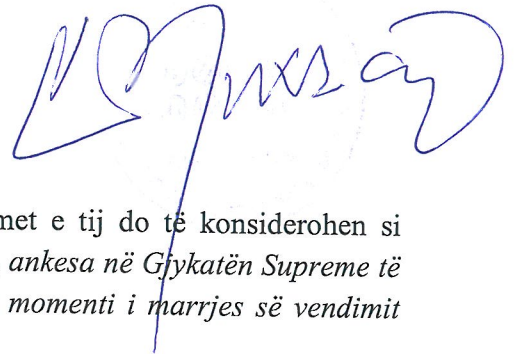 met e tij do të konsiderohen si
ankesa në Gjykatën Supreme të
momenti i marrjes së vendimit